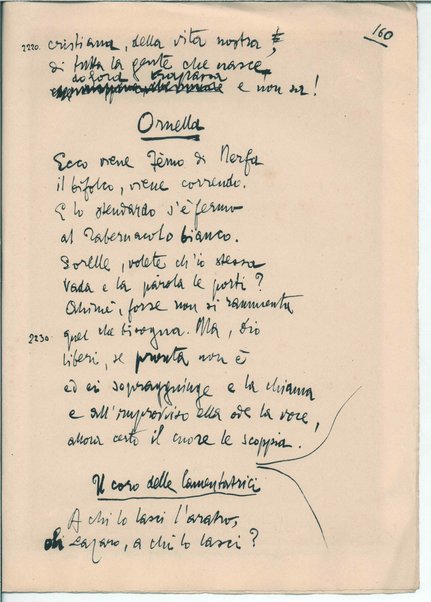 160
2220. cristiana, della vita nostra,
di tutta la gente che nasce
dolora trapassa e non sa!
Ornella
Ecco viene Fèmo di Nerfa
il bifolco, viene correndo.
E lo stendardo s'è fermo
al Tabernacolo bianco.
Sorelle, volete ch'io stessa
vada e la parola le porti?
Ohimè, forse non si rammenta
2230. quel che bisogna. Ma, Dio
liberi, se pronta non è
ed ei sopraggiunge e la chiama
e all'improvviso ella ode la voce,
allora certo il cuore le scoppia.
Il coro delle lamentatrici
A chi lo lasci l'aratro,
oh Lazaro, a chi lo lasci?